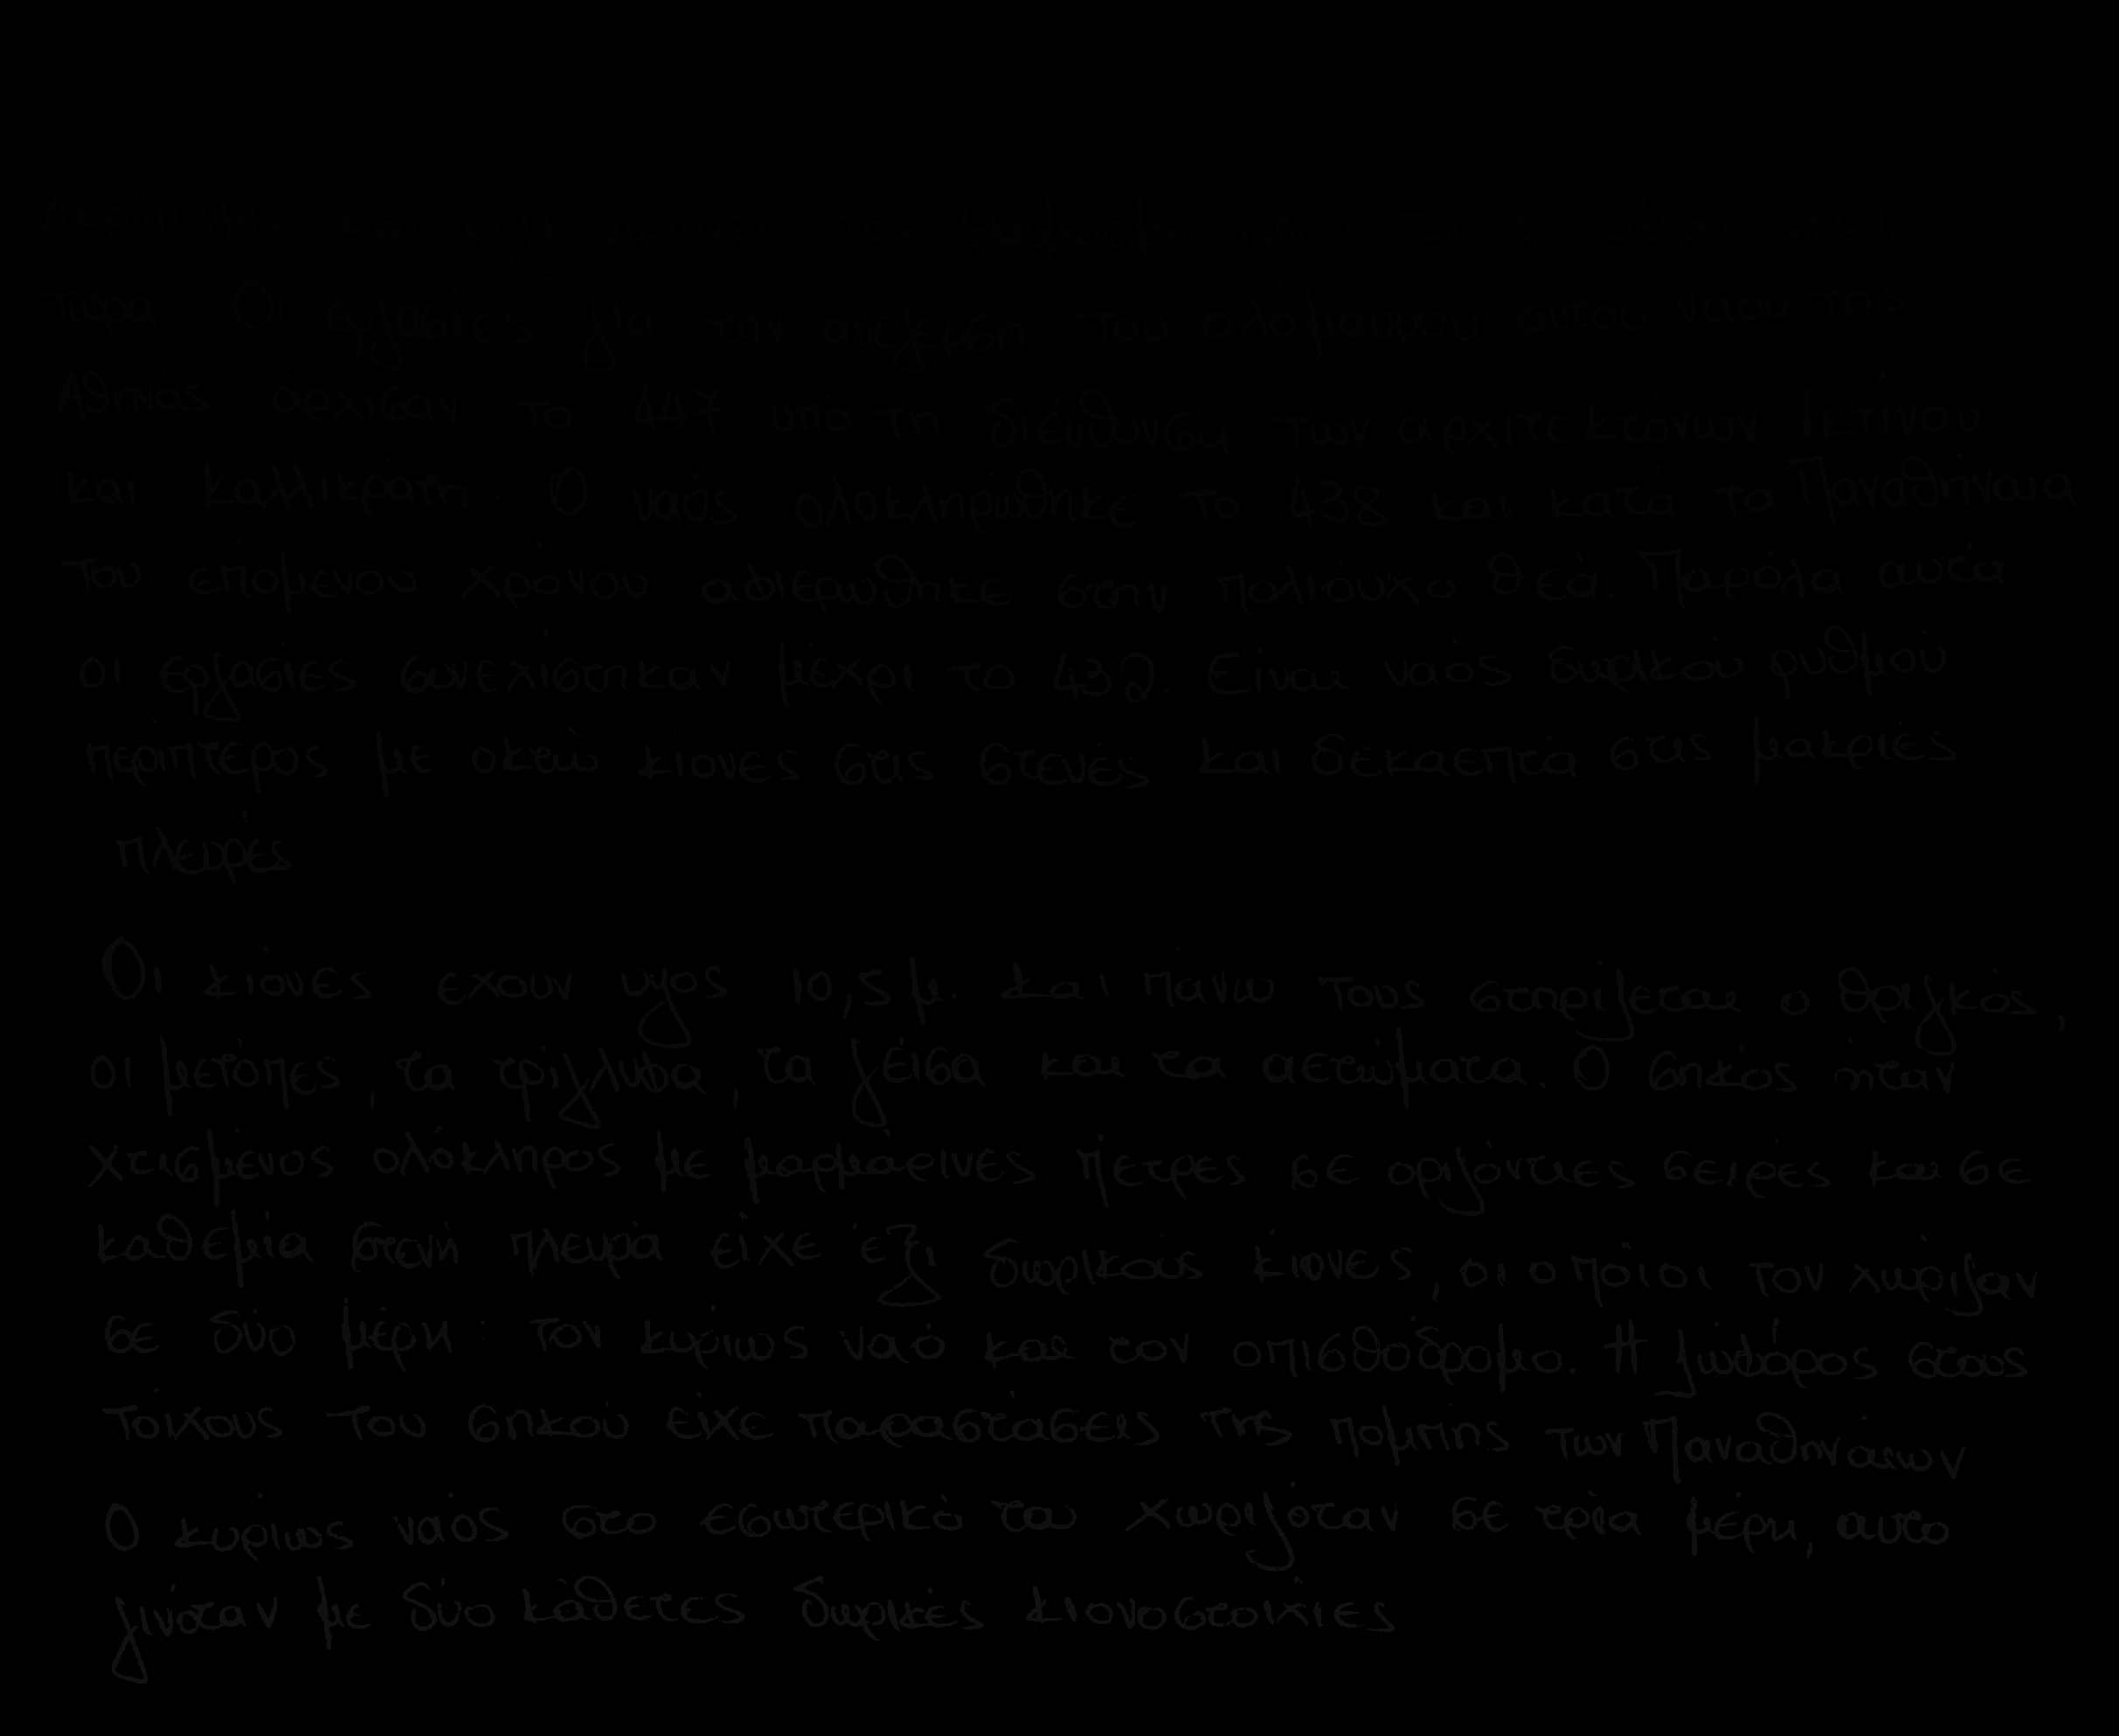 Ο Παρθενώνας είναι το μεγαλύτερο και
Ακρόπολης και συγκεντρώνει τον θαυμασμό όλου του κόσμου αιώνες
τώρα Οι εργασίες για την ανέγερση του ολόμαυρου αυτού ναού της
Αθηνάς άρχισαν το 447 υπό τη διεύθυνση των αρχιτεκτόνων Ικτίνου
και Καλλικράτη. Ο ναός ολοκληρώθηκε το 438 και κατά τα Παναθήναια
του επόμενου χρόνου αφιερώθηκε στην πολιούχο θεά. Παρόλα αυτά
οι εργασίες συνεχίστηκαν μέχρι το 432. Είναι ναός δωρικού ρυθμού
περίπτερος με οκτώ κίονες στις στενές και δεκαεπτά στις μακριές
πλευρές
Οι κίονες έχουν υψος 10,5 μ. και πάνω τους στηρίζεται ο θριγκός,
οι μετόπες, τα τρίγλυφα, τα γείσα και τα αετώματα. Ο σηκός ήταν
χτισμένος ολόκληρος με μαρμάρινες πέτρες σε οριζόντιες σειρές και σε
καθεμία στενή πλευρά είχε έξι δωρικούς κίονες, οι οποίοι τον χώριζαν
σε δύο μέρη: τον κυρίως ναό και τον οπισθόδρομο. Η ζωφόρος στους
τοίχους του σηκού είχε παραστάσεις της πομπής των Παναθηναίων
Ο κυρίως ναός στο εσωτερικό του χωριζόταν σε τρία μέρη, αυτο
γινόταν με δύο κάθετες δωρικές κιονοστοιχίες